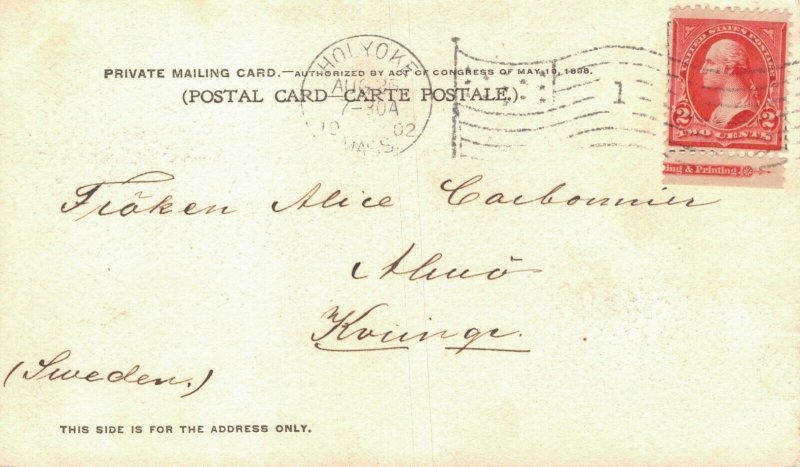 PRIVATE MAILING CARD.—AUTHORIZED BY ACT OF CONGRESS OF MAY 19, 1898.
(POSTAL CARD—CARTE POSTALE.)
HOLYOKE
AUG 25
7-30A
19 02
MASS.
1
UNITED STATES POSTAGE
2 2
TWO CENTS
ing & Printing.
Fröken Alice Carbonnier
Almö
(Sweden.)
THIS SIDE IS FOR THE ADDRESS ONLY.